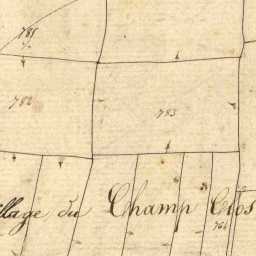 785
782
783
llage du Champ Clos
764